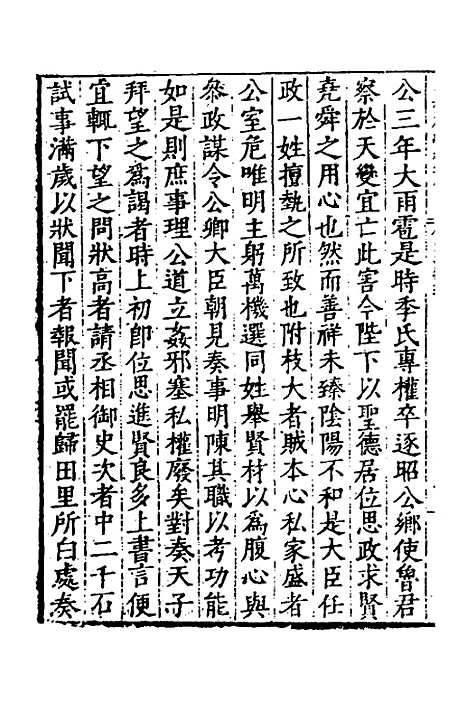 公三年大雨雹是時季氏專權卒逐昭公鄉使魯君
察於天變宜亡此害今陛下以聖德居位思政求賢
堯舜之用心也然而善祥未臻陰陽不和是大臣任
政一姓擅埶之所致也附枝大者賊本心私家盛者
公室危唯明主躬萬機選同姓舉賢材以爲腹心與
叅政謀令公卿大臣朝見奏事明陳其職以考功能
如是則庶事理公道立姦邪塞私權廢矣對奏天子
拜望之爲謁者時上初卽位思進賢良多上書言便
宜輒下望之問狀高者請丞相御史次者中二千石
試事滿歲以狀聞下者報聞或罷歸田里所白處奏